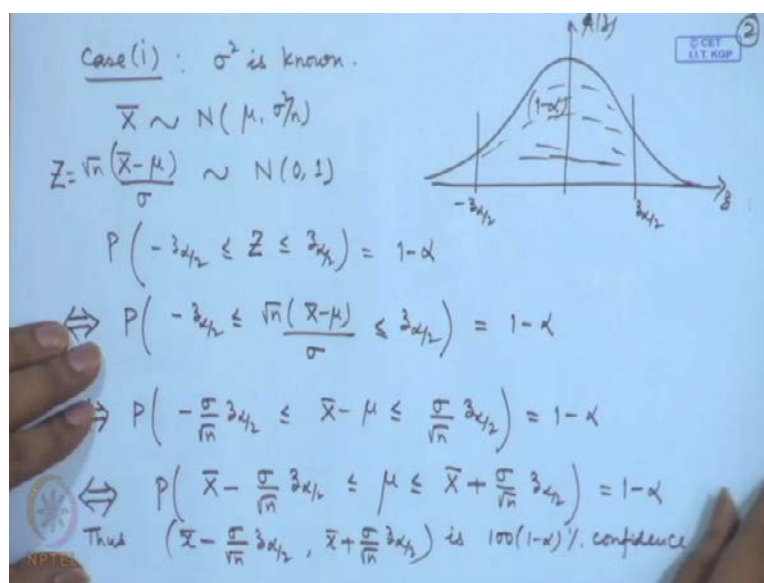 ②
© CET
I.I.T. KGP
Case(i) : σ² is known.
X̄ ~ N( μ, σ²/n)
Z = √n (X̄-μ)/σ ~ N(0,1)
(1-α)
-z_{α/2} z_{α/2} z
P( -z_{α/2} ≤ Z ≤ z_{α/2} ) = 1-α
⇔ P( -z_{α/2} ≤ √n (X̄-μ)/σ ≤ z_{α/2} ) = 1-α
⇔ P( -σ/√n z_{α/2} ≤ X̄-μ ≤ σ/√n z_{α/2} ) = 1-α
⇔ P( X̄ - σ/√n z_{α/2} ≤ μ ≤ X̄ + σ/√n z_{α/2} ) = 1-α
Thus (x̄ - σ/√n z_{α/2}, x̄ + σ/√n z_{α/2}) is 100(1-α)%. confidence
NPTEL